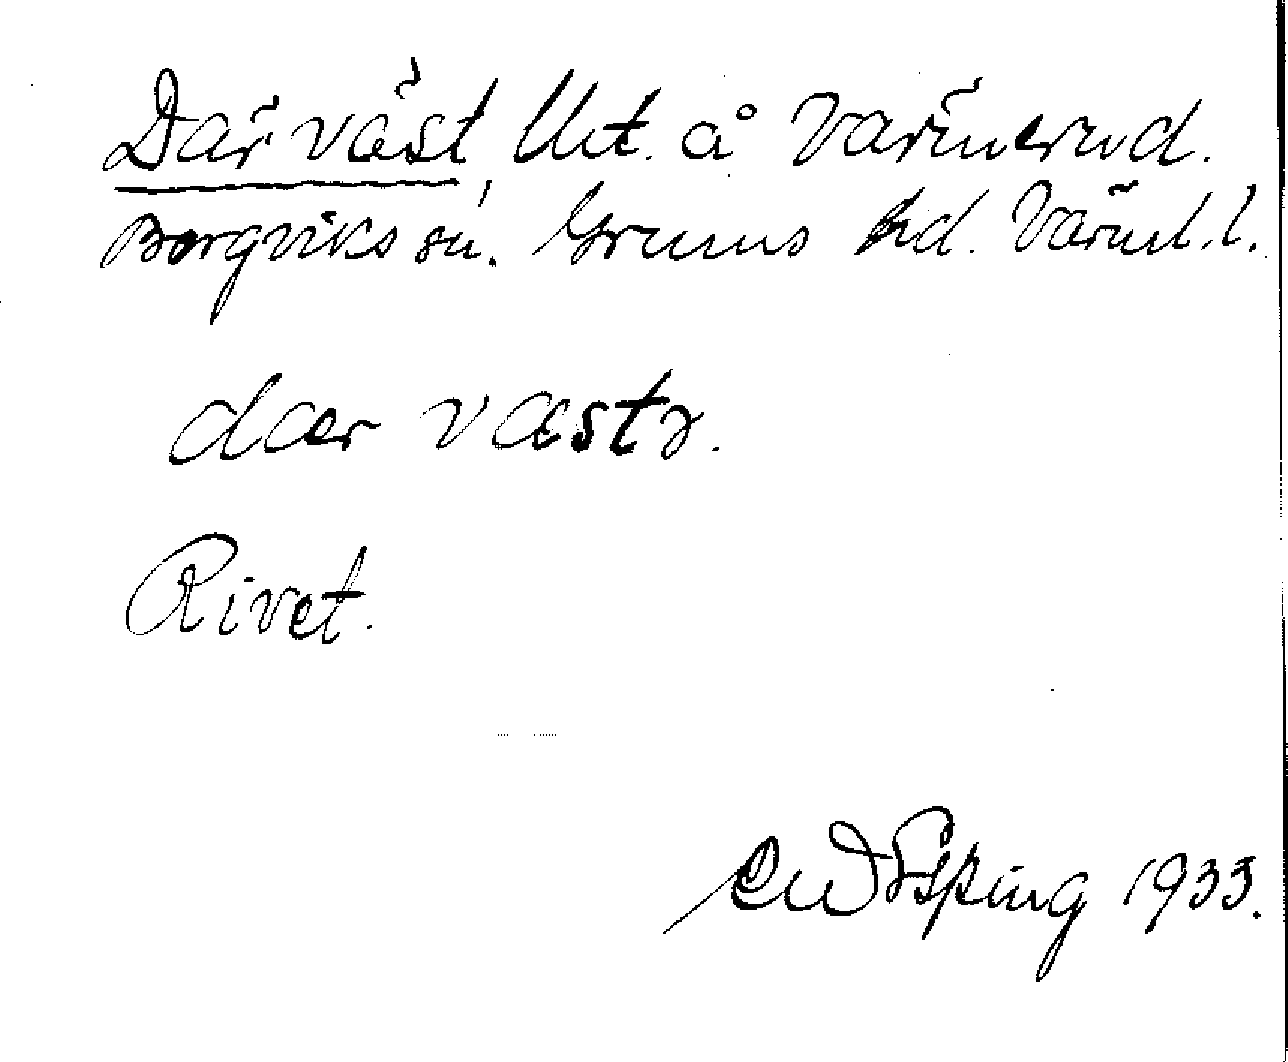 Där väst Ut. å Värmerud.
Borgviks sn. Grums hd. Värml. l.
dær væstə.
Rivet.
1933.